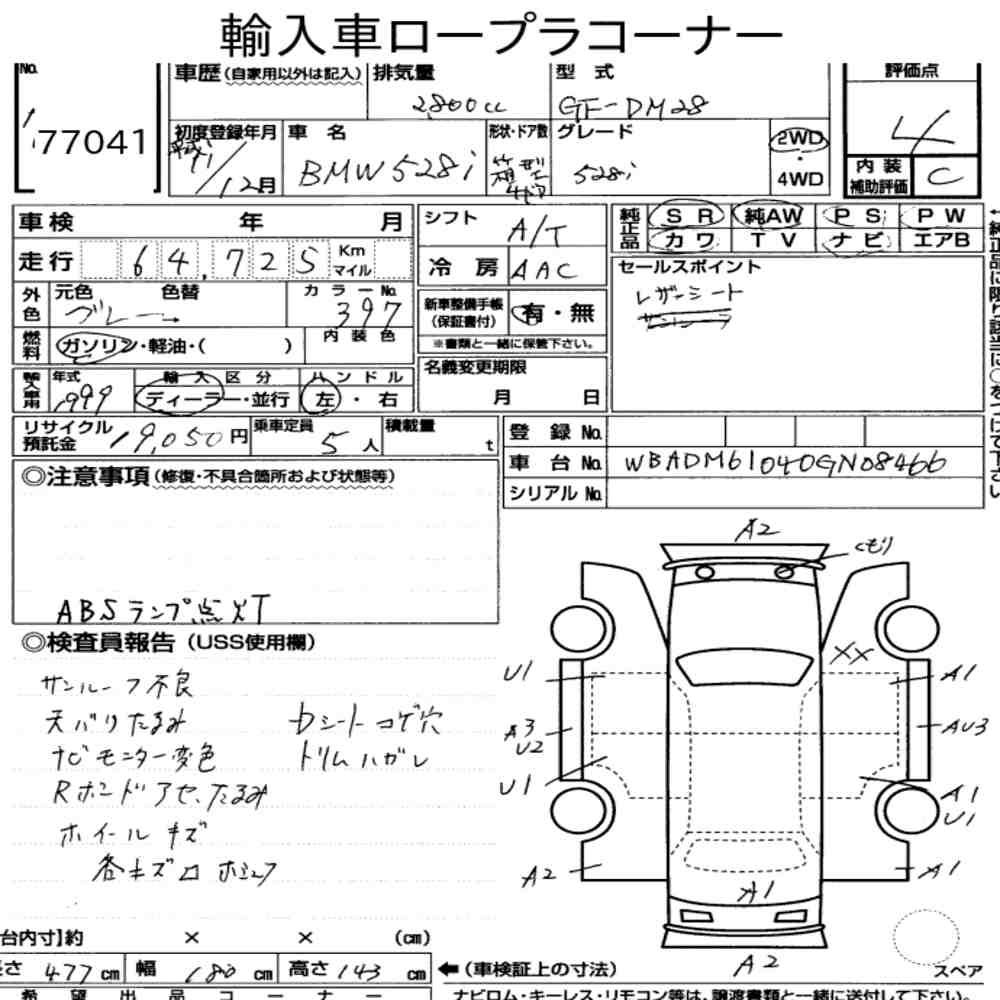 輸入車ロープラコーナー
No.
77041
車歴(自家用以外は記入)
排気量
2,800cc
型式
GF-DM28
評価点
4
初度登録年月
平成11/12月
車名
BMW528i
形状・ドア数
箱型
4ドア
グレード
528i
2WD
・
4WD
内装
補助評価
C
車検 年 月
シフト
A/T
純正品
SR 純AW PS PW
カワ TV ナビ エアB
走行 64,725 Km マイル
冷房 AAC
セールスポイント
レザーシート
外色
元色 色替
カラーNo.
397
新車整備手帳
(保証書付)
有・無
※書類と一緒に保管下さい。
燃料
ガソリン・軽油・( )
内装色
名義変更期限
月 日
年式
1999
輸入区分
ディーラー・並行
ハンドル
左・右
リサイクル
預託金
19,050円
乗車定員
5人
積載量
t
登録No.
車台No. WBADM61040GN08466
シリアルNo.
◎注意事項(修復・不具合箇所および状態等)
ABSランプ点灯
◎検査員報告(USS使用欄)
サンルーフ不良
天バリたるみ
ナビモニター変色
ホイールキズ
シートコゲ穴
トリムハガレ
A2
くもり
XX
U1
A1
A3
U2
AU3
U1
A1
U1
A2
A1
A1
A2
スペア
台内寸]約 × × (cm)
長さ 477cm 幅 180cm 高さ 143cm
←(車検証上の寸法)
希望出品コーナー
ナビロム・キーレス・リモコン等は、譲渡書類と一緒に送付して下さい。